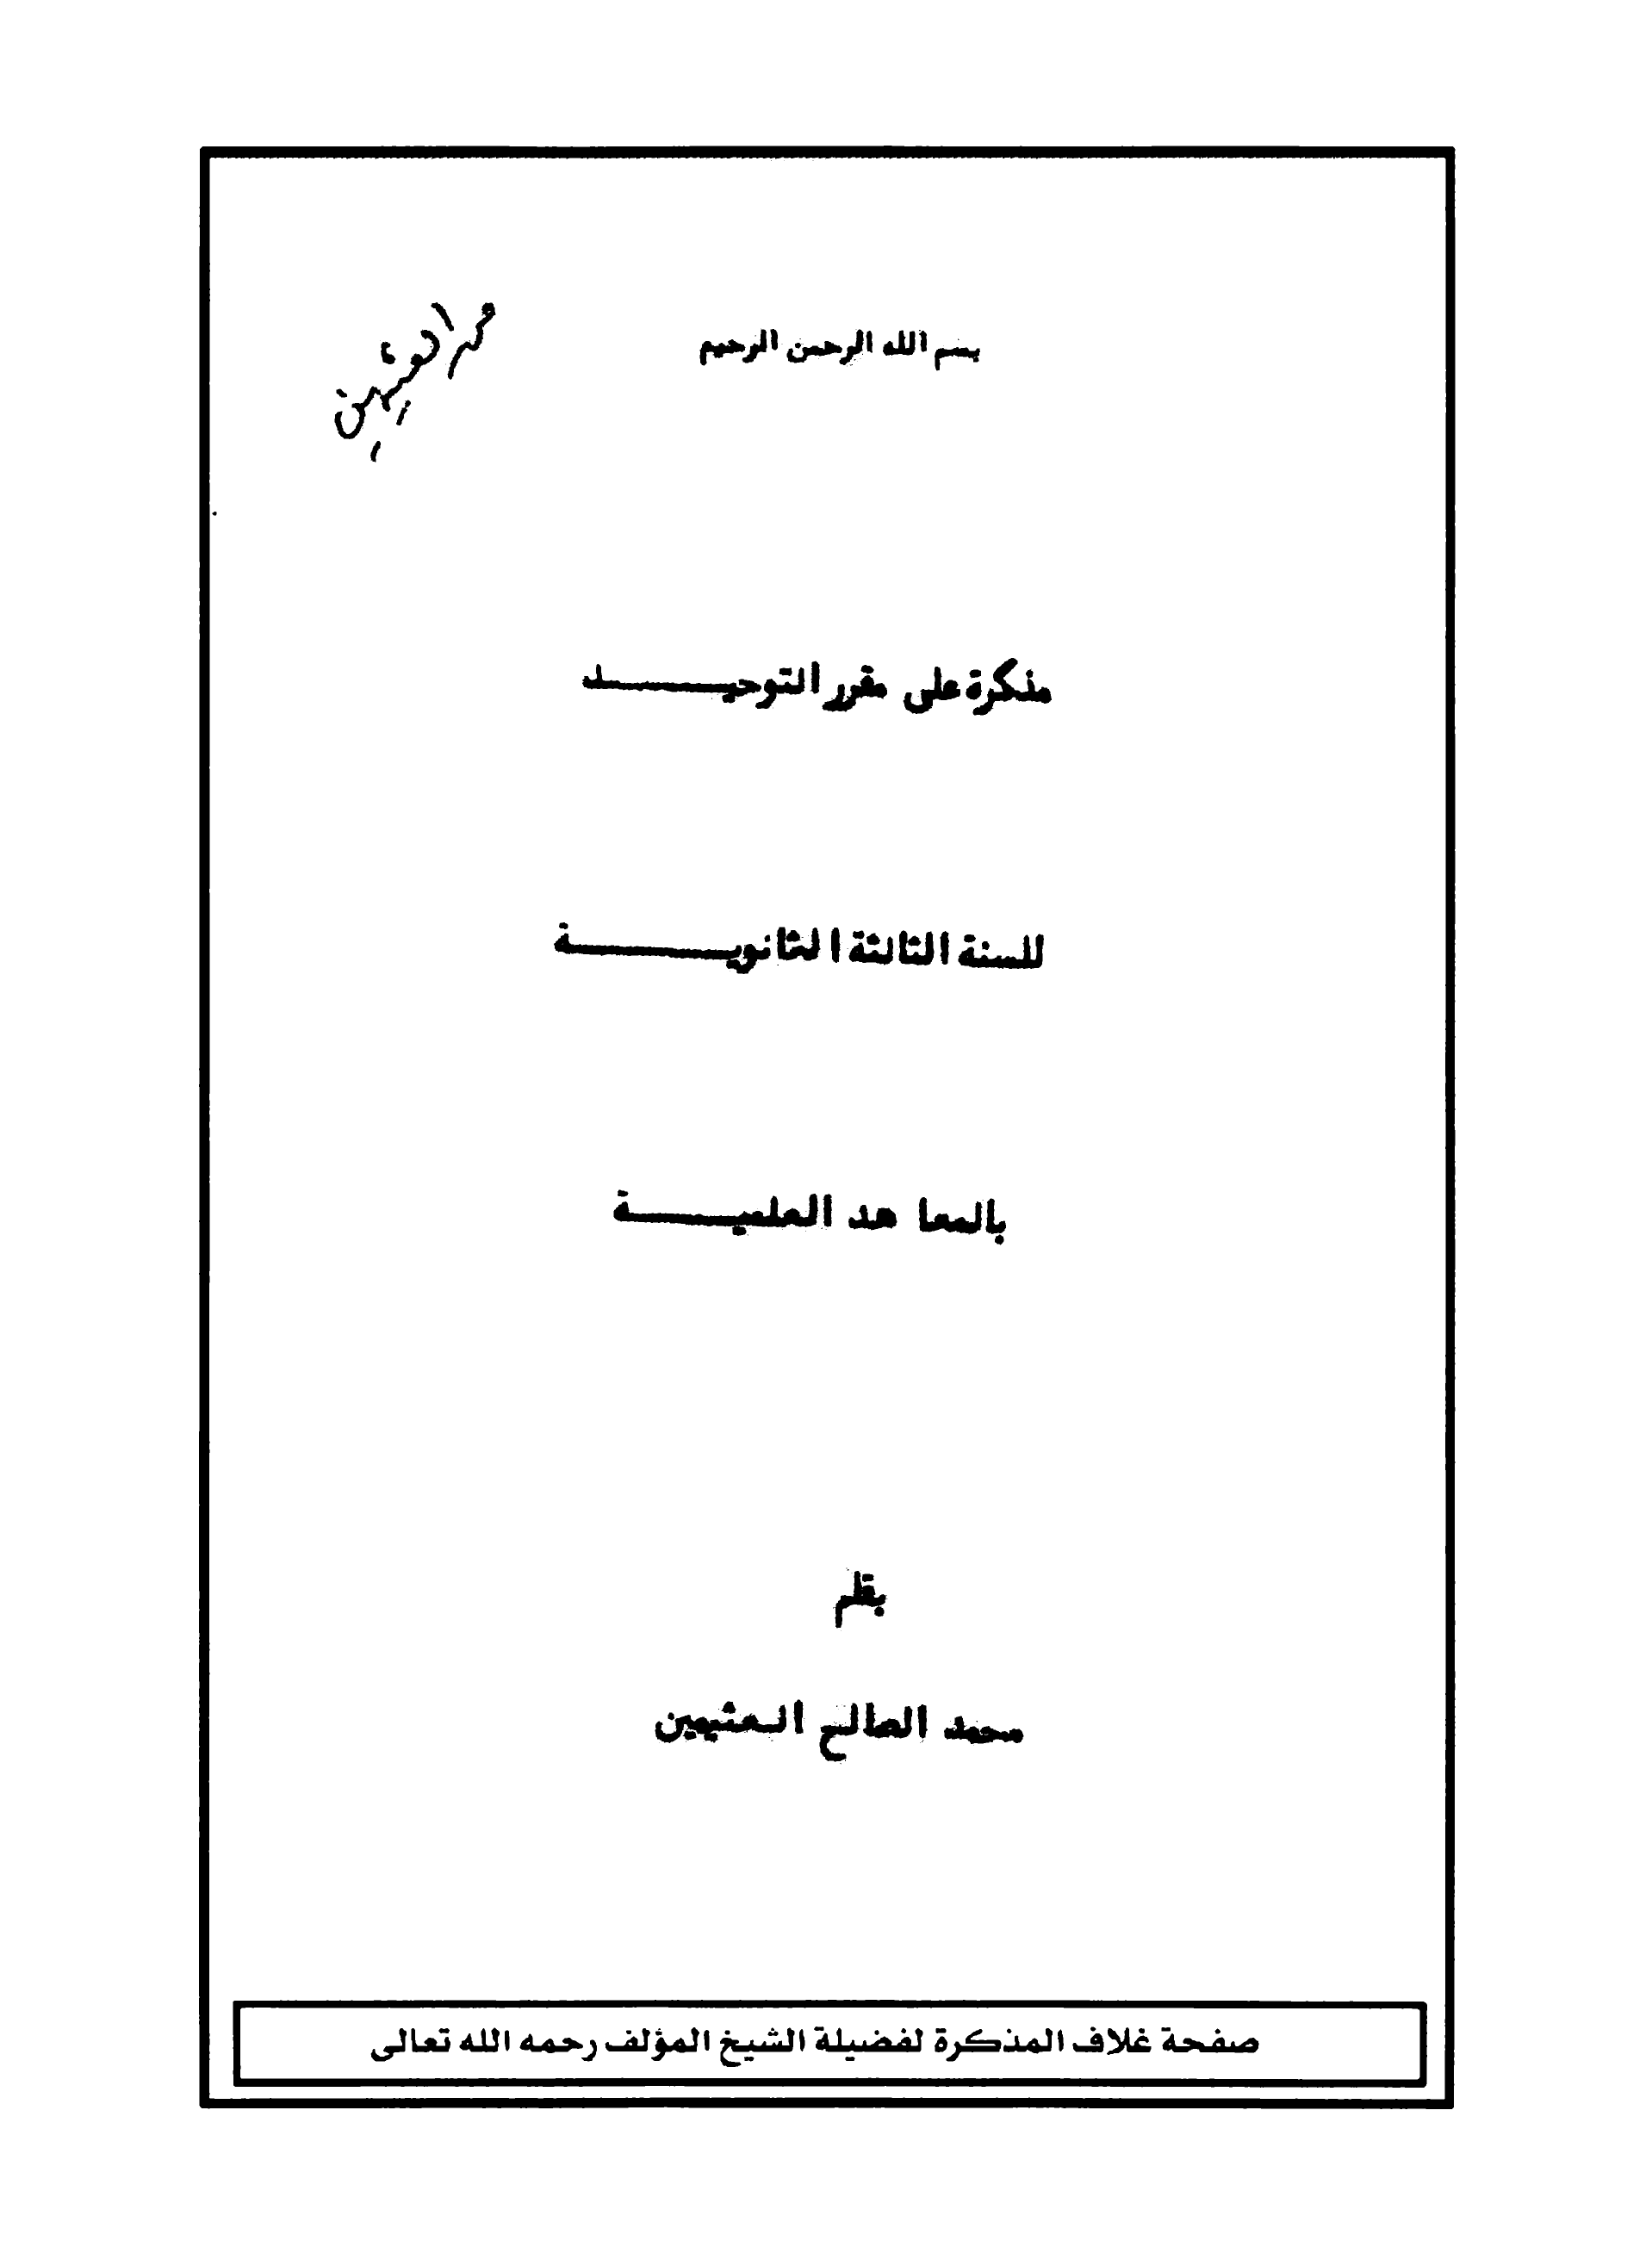 بسم الله الرحمن الرحيم
محمد العثيمين
مذكرة على مقرر التوحيـــــــد
للسنة الثالثة الثانويـــــــــة
بالمعاهد العلميـــــــة
بقلم
محمد الصالح العثيمين
صفحة غلاف المذكرة لفضيلة الشيخ المؤلف رحمه الله تعالى